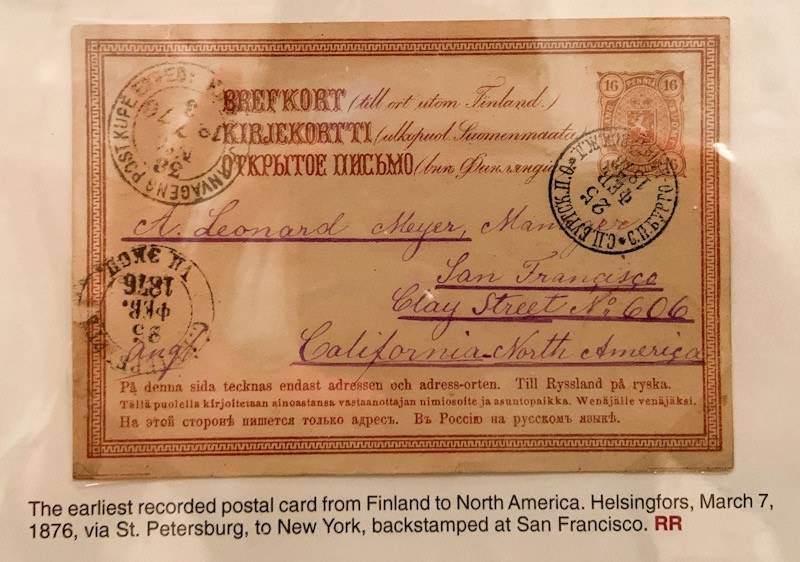 16 PENNIÄ 16
BREFKORT (till ort utom Finland.)
KIRJEKORTTI (ulkopuol. Suomenmaata
ОТКРЫТОЕ ПИСЬМО (внѣ Финляндіи
16
POST KUPÉ EXPED:
25
ФЕВ
С.П.БУРГСК.П.О.
A. Leonard Meyer, Manager
San Francisco
Clay Street № 606
California-North America
1876
ФЕВ.
25
På denna sida tecknas endast adressen och adress-orten. Till Ryssland på ryska.
Tällä puolella kirjoitetaan ainoastansa vastaanottajan nimi osoite ja asuntopaikka. Wenäjälle venäjäksi.
На этой сторонѣ пишется только адресъ. Въ Россію на русскомъ языкѣ.
The earliest recorded postal card from Finland to North America. Helsingfors, March 7,
1876, via St. Petersburg, to New York, backstamped at San Francisco. RR